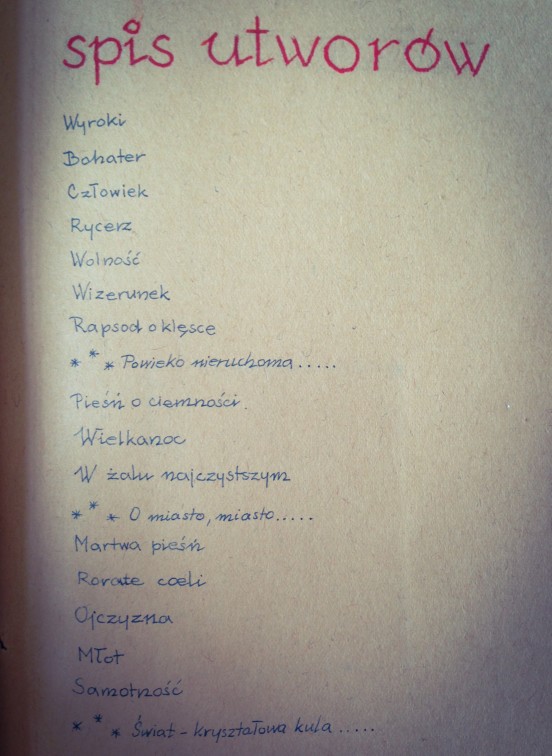 spis utworów
Wyroki
Bohater
Człowiek
Rycerz
Wolność
Wizerunek
Rapsod o klęsce
* * * Powieko nieruchoma.....
Pieśń o ciemności.
Wielkanoc
W żalu najczystszym
* * * O miasto, miasto.....
Martwa pieśń
Rorate coeli
Ojczyzna
Młot
Samotność
* * * Świat - kryształowa kula.....